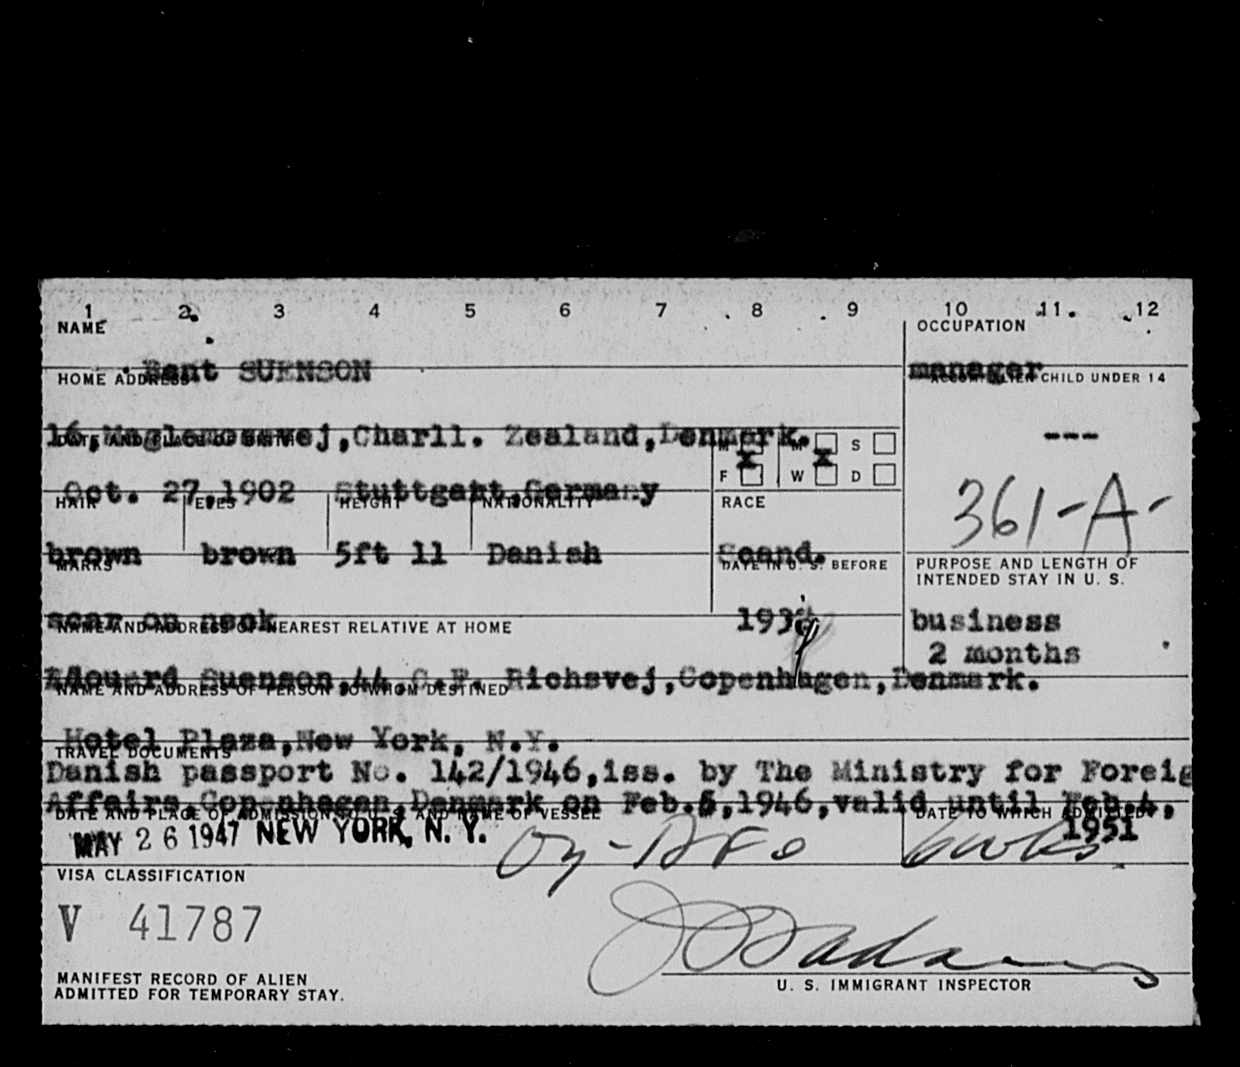 1 2 3 4 5 6 7 8 9 10 11 12
NAME OCCUPATION
Bent SUENSON manager
HOME ADDRESS ACCOMP. ALIEN CHILD UNDER 14
16, Maglemosevej, Charll. Zealand, Denmark. ---
DATE AND PLACE OF BIRTH M X M X S
Oct. 27, 1902 Stuttgart, Germany F W D
361-A-
HAIR EYES HEIGHT NATIONALITY RACE
brown brown 5ft 11 Danish Scand.
MARKS DATE IN U. S. BEFORE PURPOSE AND LENGTH OF
INTENDED STAY IN U. S.
scar on neck 1939 business
2 months
NAME AND ADDRESS OF NEAREST RELATIVE AT HOME
Edouard Suenson, 44, C.F. Richsvej, Copenhagen, Denmark.
NAME AND ADDRESS OF PERSON TO WHOM DESTINED
Hotel Plaza, New York, N.Y.
TRAVEL DOCUMENTS
Danish passport No. 142/1946, iss. by The Ministry for Foreig
Affairs, Copenhagen, Denmark on Feb. 5, 1946, valid until Feb. 4,
1951
DATE AND PLACE OF ADMISSION TO U. S. AND NAME OF VESSEL DATE TO WHICH ADMITTED
MAY 26 1947 NEW YORK, N. Y.
VISA CLASSIFICATION
V 41787
Adams
MANIFEST RECORD OF ALIEN
ADMITTED FOR TEMPORARY STAY.
U. S. IMMIGRANT INSPECTOR